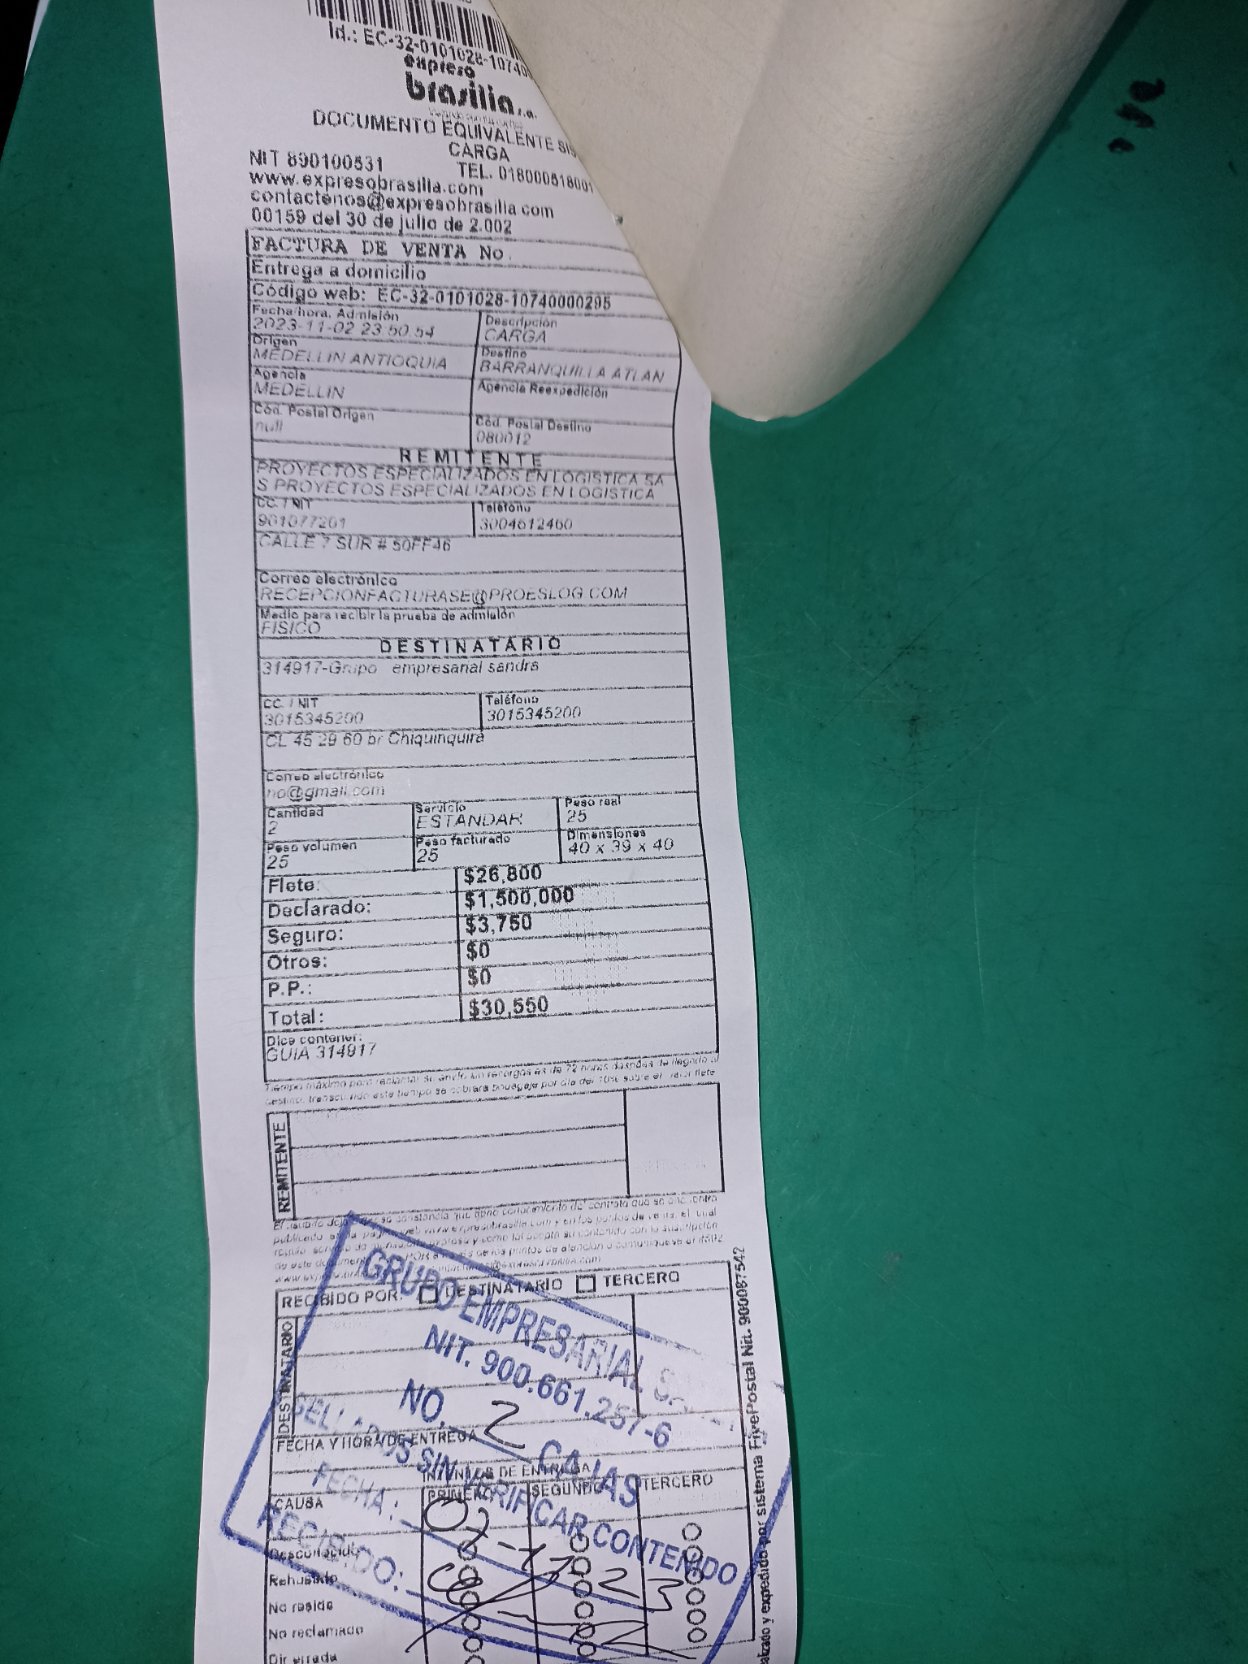 Id.: EC-32-0101028-10740
expreso
brasilia s.a.
DOCUMENTO EQUIVALENTE
CARGA
NIT 890100531 TEL. 018000518001
www.expresobrasilia.com
contactenos@expresobrasilia com
00159 del 30 de julio de 2.002
FACTURA DE VENTA No.
Entrega a domicilio
Código web: EC-32-0101028-10740000295
Fecha/hora. Admisión Descripción
2023-11-02 23 50 54 CARGA
Origen Destino
MEDELLIN ANTIOQUIA BARRANQUILLA ATLAN
Agencia Agencia Reexpedición
MEDELLIN
Cód. Postal Origen Cód. Postal Destino
null 080012
REMITENTE
PROYECTOS ESPECIALIZADOS EN LOGISTICA SA
S PROYECTOS ESPECIALIZADOS EN LOGISTICA
CC. / NIT Teléfono
901077201 3004612460
CALLE 7 SUR # 50FF46
Correo electrónico
RECEPCIONFACTURASE@PROESLOG.COM
Medio para recibir la prueba de admisión
FISICO
DESTINATARIO
314917-Grupo empresarial sandrs
CC. / NIT Teléfono
3015345200 3015345200
CL 45 29 60 br Chiquinquira
Correo electrónico
no@gmail.com
Cantidad Servicio Peso real
2 ESTANDAR 25
Peso volumen Peso facturado Dimensiones
25 25 40 x 39 x 40
Flete: $26,800
Declarado: $1,500,000
Seguro: $3,750
Otros: $0
P.P.: $0
Total: $30,550
Dice contener:
GUIA 314917
Tiempo máximo para reclamar su envío sin recargos es de 72 horas después de llegado al
destino, transcurrido este tiempo se cobrará bodegaje por día del 10% sobre el valor flete
REMITENTE
RECIBIDO POR: DESTINATARIO TERCERO
DESTINATARIO
FECHA Y HORA DE ENTREGA
INTENTOS DE ENTREGA
CAUSA PRIMERO SEGUNDO TERCERO
Desconocido
Rehusado
No reside
No reclamado
Dir errada
GRUPO EMPRESARIAL
NIT. 900.661.257-6
NO. 2 CAJAS
SELLADOS SIN VERIFICAR CONTENIDO
FECHA:
RECIBIDO:
expedido por sistema FivePostal Nit. 900087542